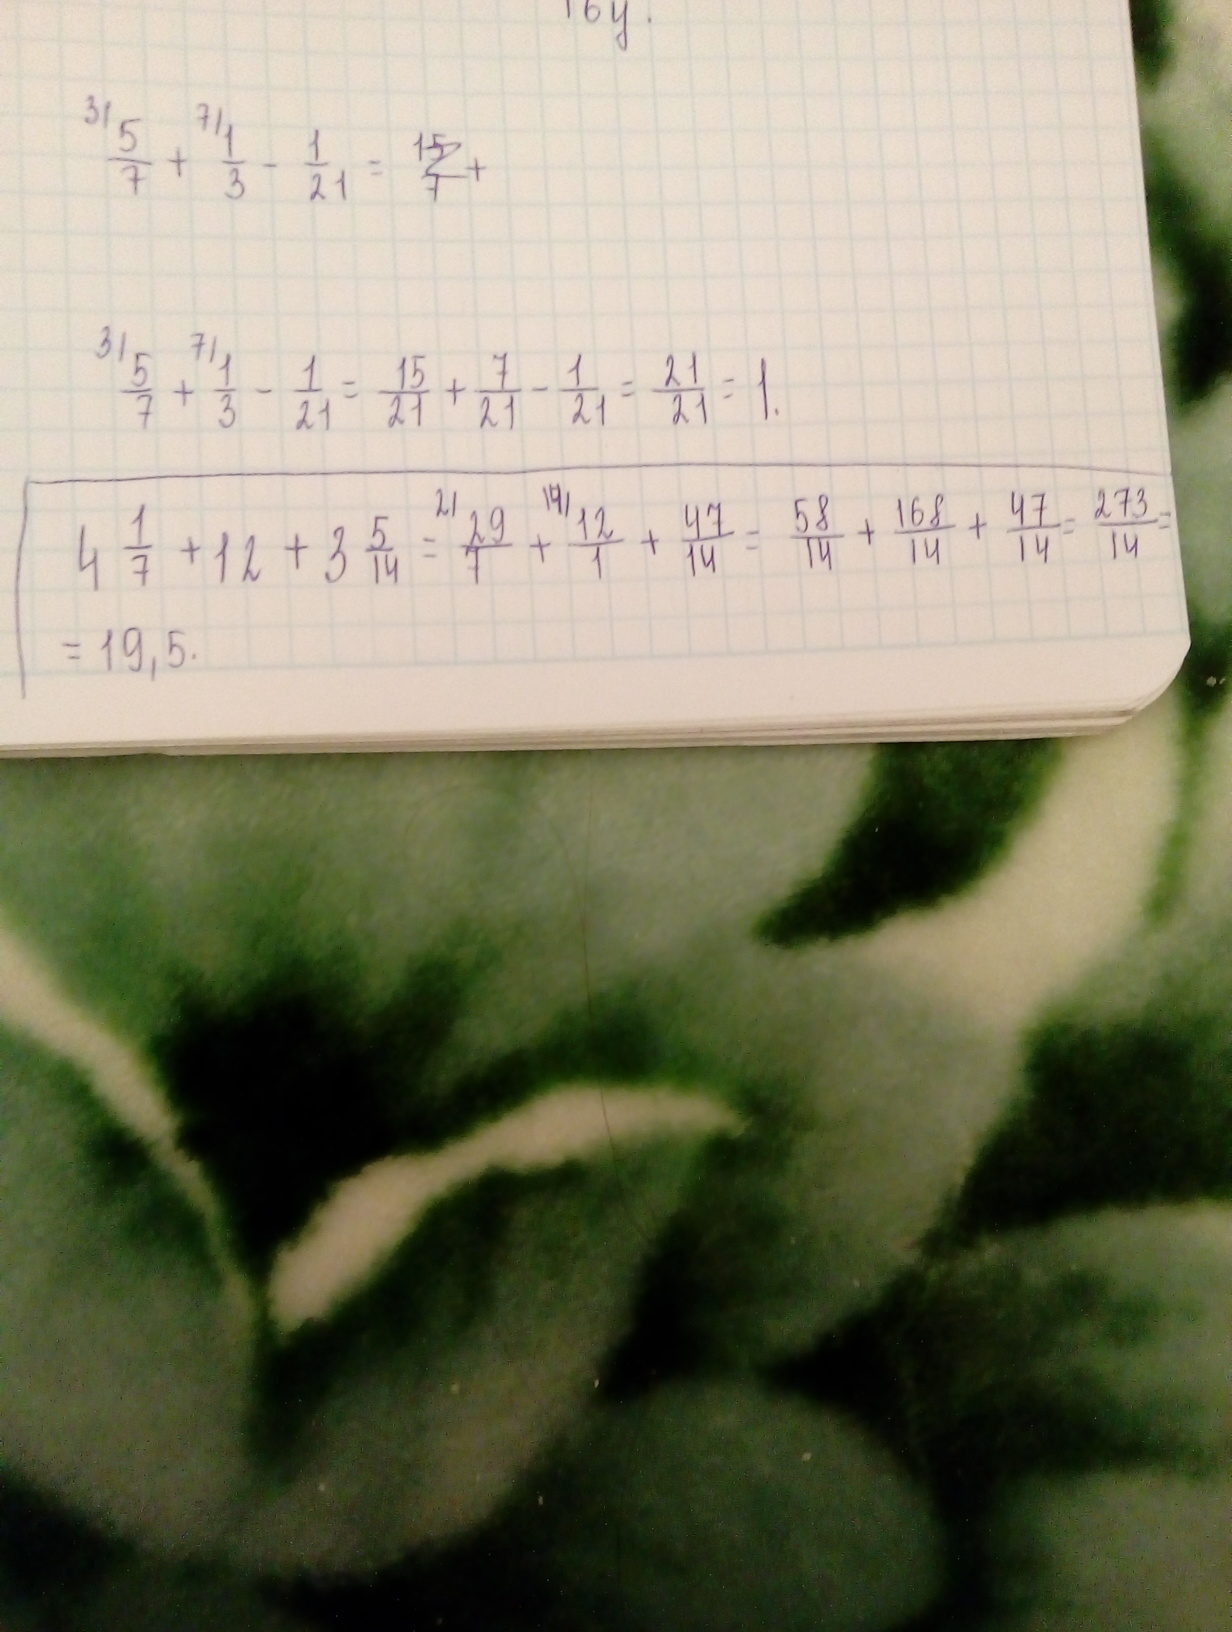 16у.
3/ 5/7 + 7/ 1/3 - 1/21 = 15/7 +
3/ 5/7 + 7/ 1/3 - 1/21 = 15/21 + 7/21 - 1/21 = 21/21 = 1.
4 1/7 + 12 + 3 5/14 = 2/ 29/7 + 14/ 12/1 + 47/14 = 58/14 + 168/14 + 47/14 = 273/14 =
= 19,5.